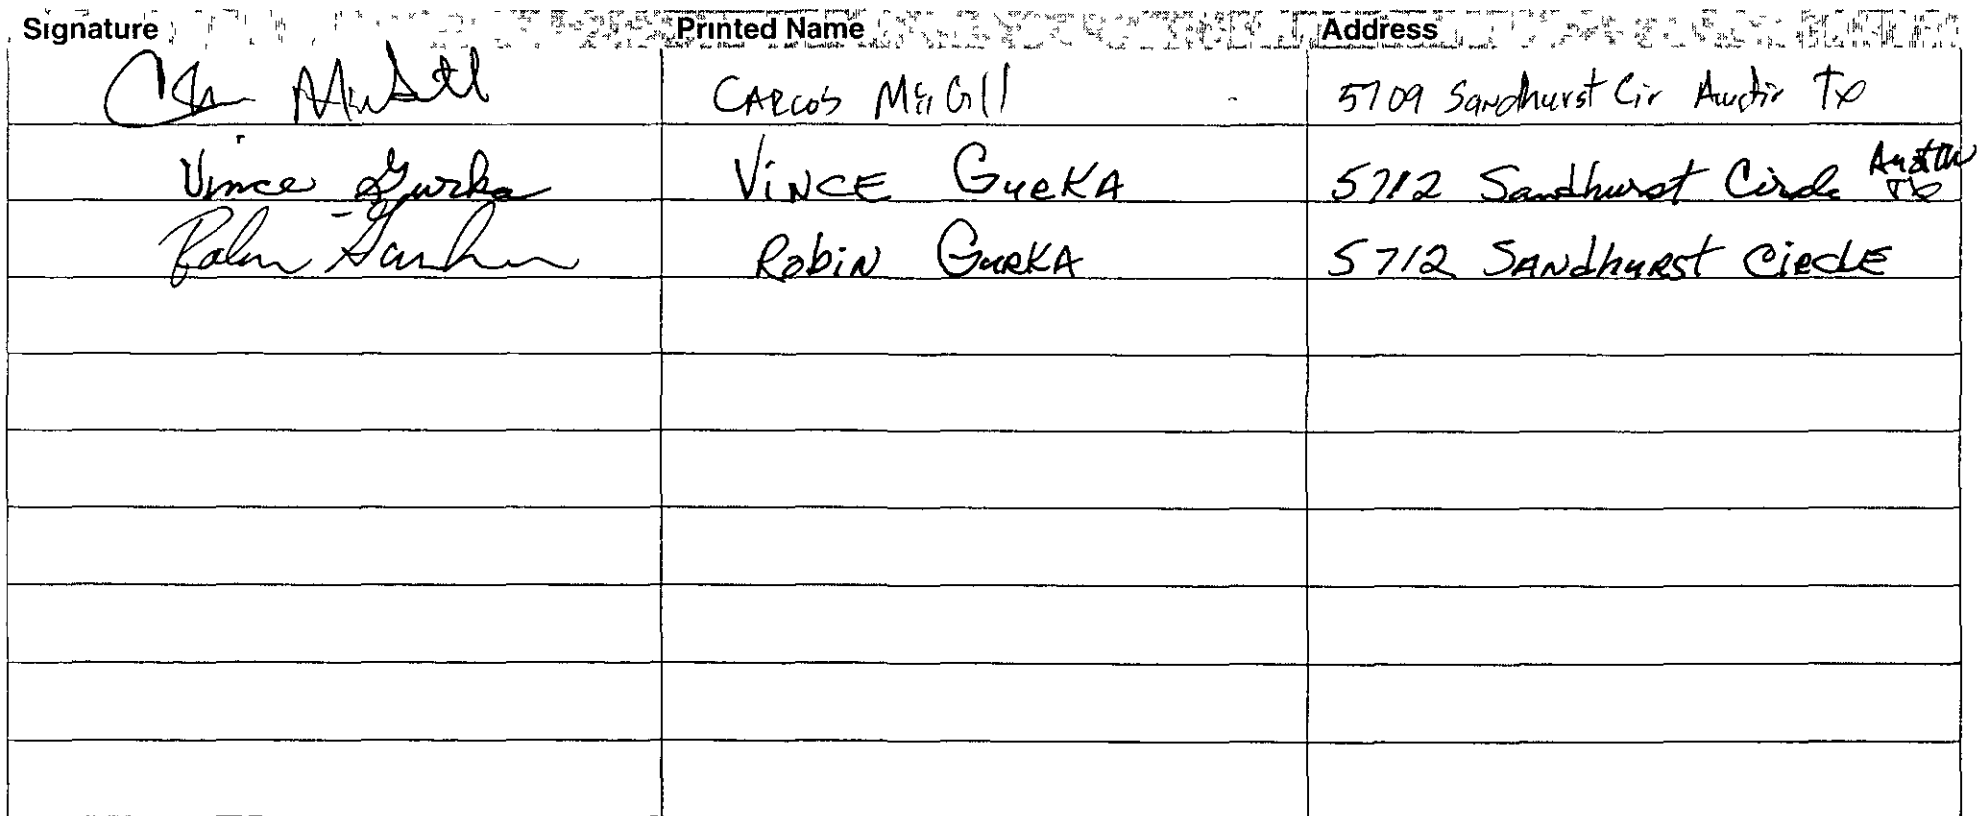 Signature Printed Name Address
CARLOS McGill 5709 Sandhurst Cir Austin TX
Vince Gurka VINCE GURKA 5712 Sandhurst Circle Austin TX
Robin Gurka RobiN GURKA 5712 SANdhuRst CiRclE